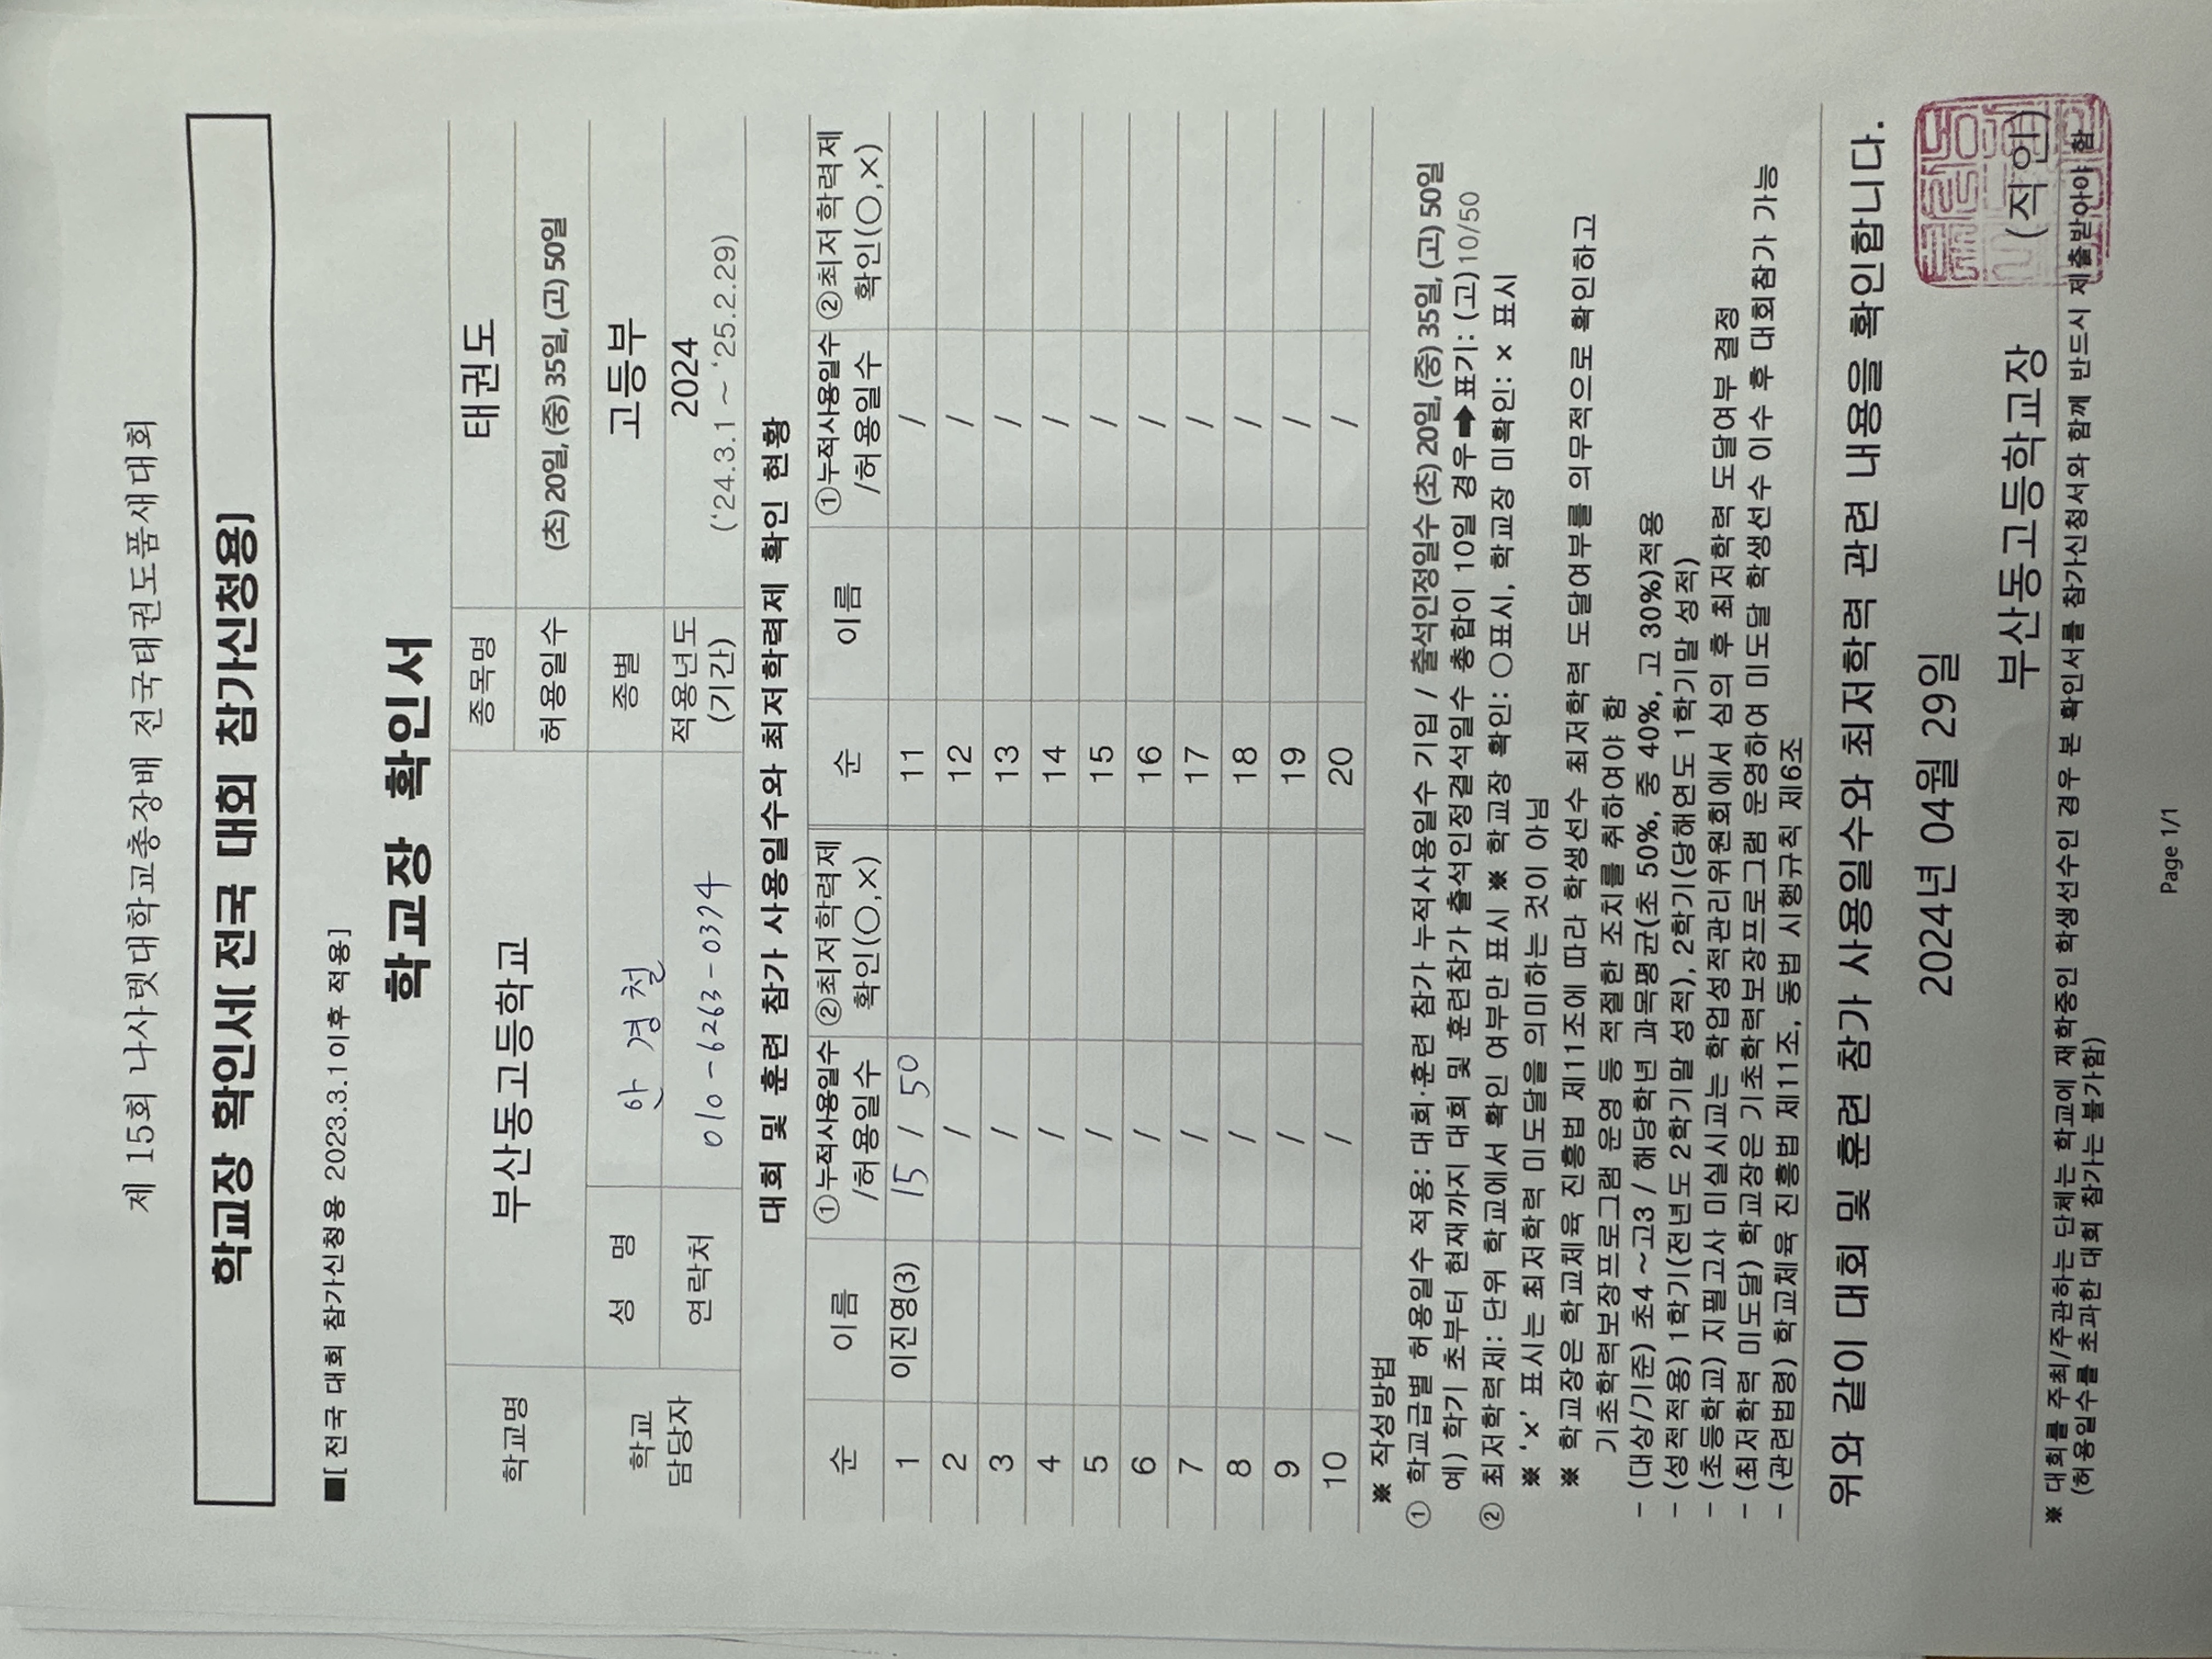 제 15회 나사렛대학교총장배 전국태권도품새대회
학교장 확인서[전국 대회 참가신청용]
■[전국 대회 참가신청용 2023.3.1이후 적용]
학교장 확인서
학교명 부산동고등학교 종목명 태권도
허용일수 (초) 20일, (중) 35일, (고) 50일
학교 담당자 성 명 안경철 종별 고등부
연락처 010-6263-0374 적용년도 (기간) 2024 ('24.3.1 ~ '25.2.29)
대회 및 훈련 참가 사용일수와 최저학력제 확인 현황
순 이름 ①누적사용일수 /허용일수 ②최저학력제 확인(○,×) 순 이름 ①누적사용일수 /허용일수 ②최저학력제 확인(○,×)
1 이진영(3) 15 / 50 11 /
2 / 12 /
3 / 13 /
4 / 14 /
5 / 15 /
6 / 16 /
7 / 17 /
8 / 18 /
9 / 19 /
10 / 20 /
※ 작성방법
① 학교급별 허용일수 적용: 대회·훈련 참가 누적사용일수 기입 / 출석인정일수 (초) 20일, (중) 35일, (고) 50일
예) 학기 초부터 현재까지 대회 및 훈련참가 출석인정결석일수 총합이 10일 경우➡표기: (고) 10/50
② 최저학력제: 단위 학교에서 확인 여부만 표시 ※ 학교장 확인: ○표시, 학교장 미확인: × 표시
※ '×' 표시는 최저학력 미도달을 의미하는 것이 아님
※ 학교장은 학교체육 진흥법 제11조에 따라 학생선수 최저학력 도달여부를 의무적으로 확인하고
기초학력보장프로그램 운영 등 적절한 조치를 취하여야 함
- (대상/기준) 초4 ~고3 / 해당학년 과목평균(초 50%, 중 40%, 고 30%)적용
- (성적적용) 1학기(전년도 2학기말 성적), 2학기(당해연도 1학기말 성적)
- (초등학교) 지필고사 미실시교는 학업성적관리위원회에서 심의 후 최저학력 도달여부 결정
- (최저학력 미도달) 학교장은 기초학력보장프로그램 운영하여 미도달 학생선수 이수 후 대회참가 가능
- (관련법령) 학교체육 진흥법 제11조, 동법 시행규칙 제6조
위와 같이 대회 및 훈련 참가 사용일수와 최저학력 관련 내용을 확인합니다.
2024년 04월 29일
부산동고등학교장 (직인)
※ 대회를 주최/주관하는 단체는 학교에 재학중인 학생선수인 경우 본 확인서를 참가신청서와 함께 반드시 제출받아야 함
(허용일수를 초과한 대회 참가는 불가함)
Page 1/1